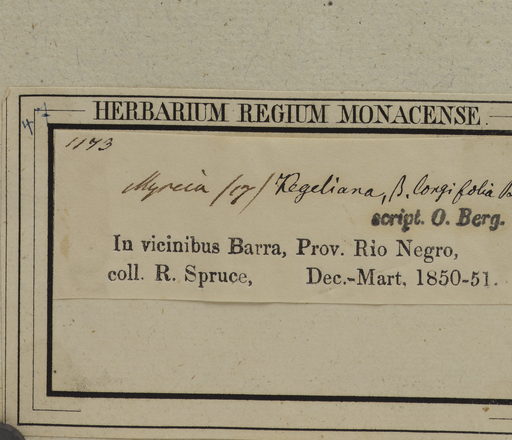 HERBARIUM REGIUM MONACENSE.
1173
Myrcia /17/ Kegeliana, β. longifolia B
script. O. Berg.
In vicinibus Barra, Prov. Rio Negro,
coll. R. Spruce, Dec.-Mart. 1850-51.